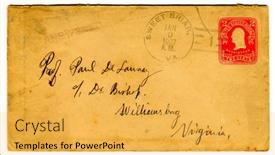 SWEET BRIAR
JAN
VA.
Prof. Paul De Launay
c/o Dr Bishop.
Williamsburg
Virginia,
Crystal
Templates for PowerPoint